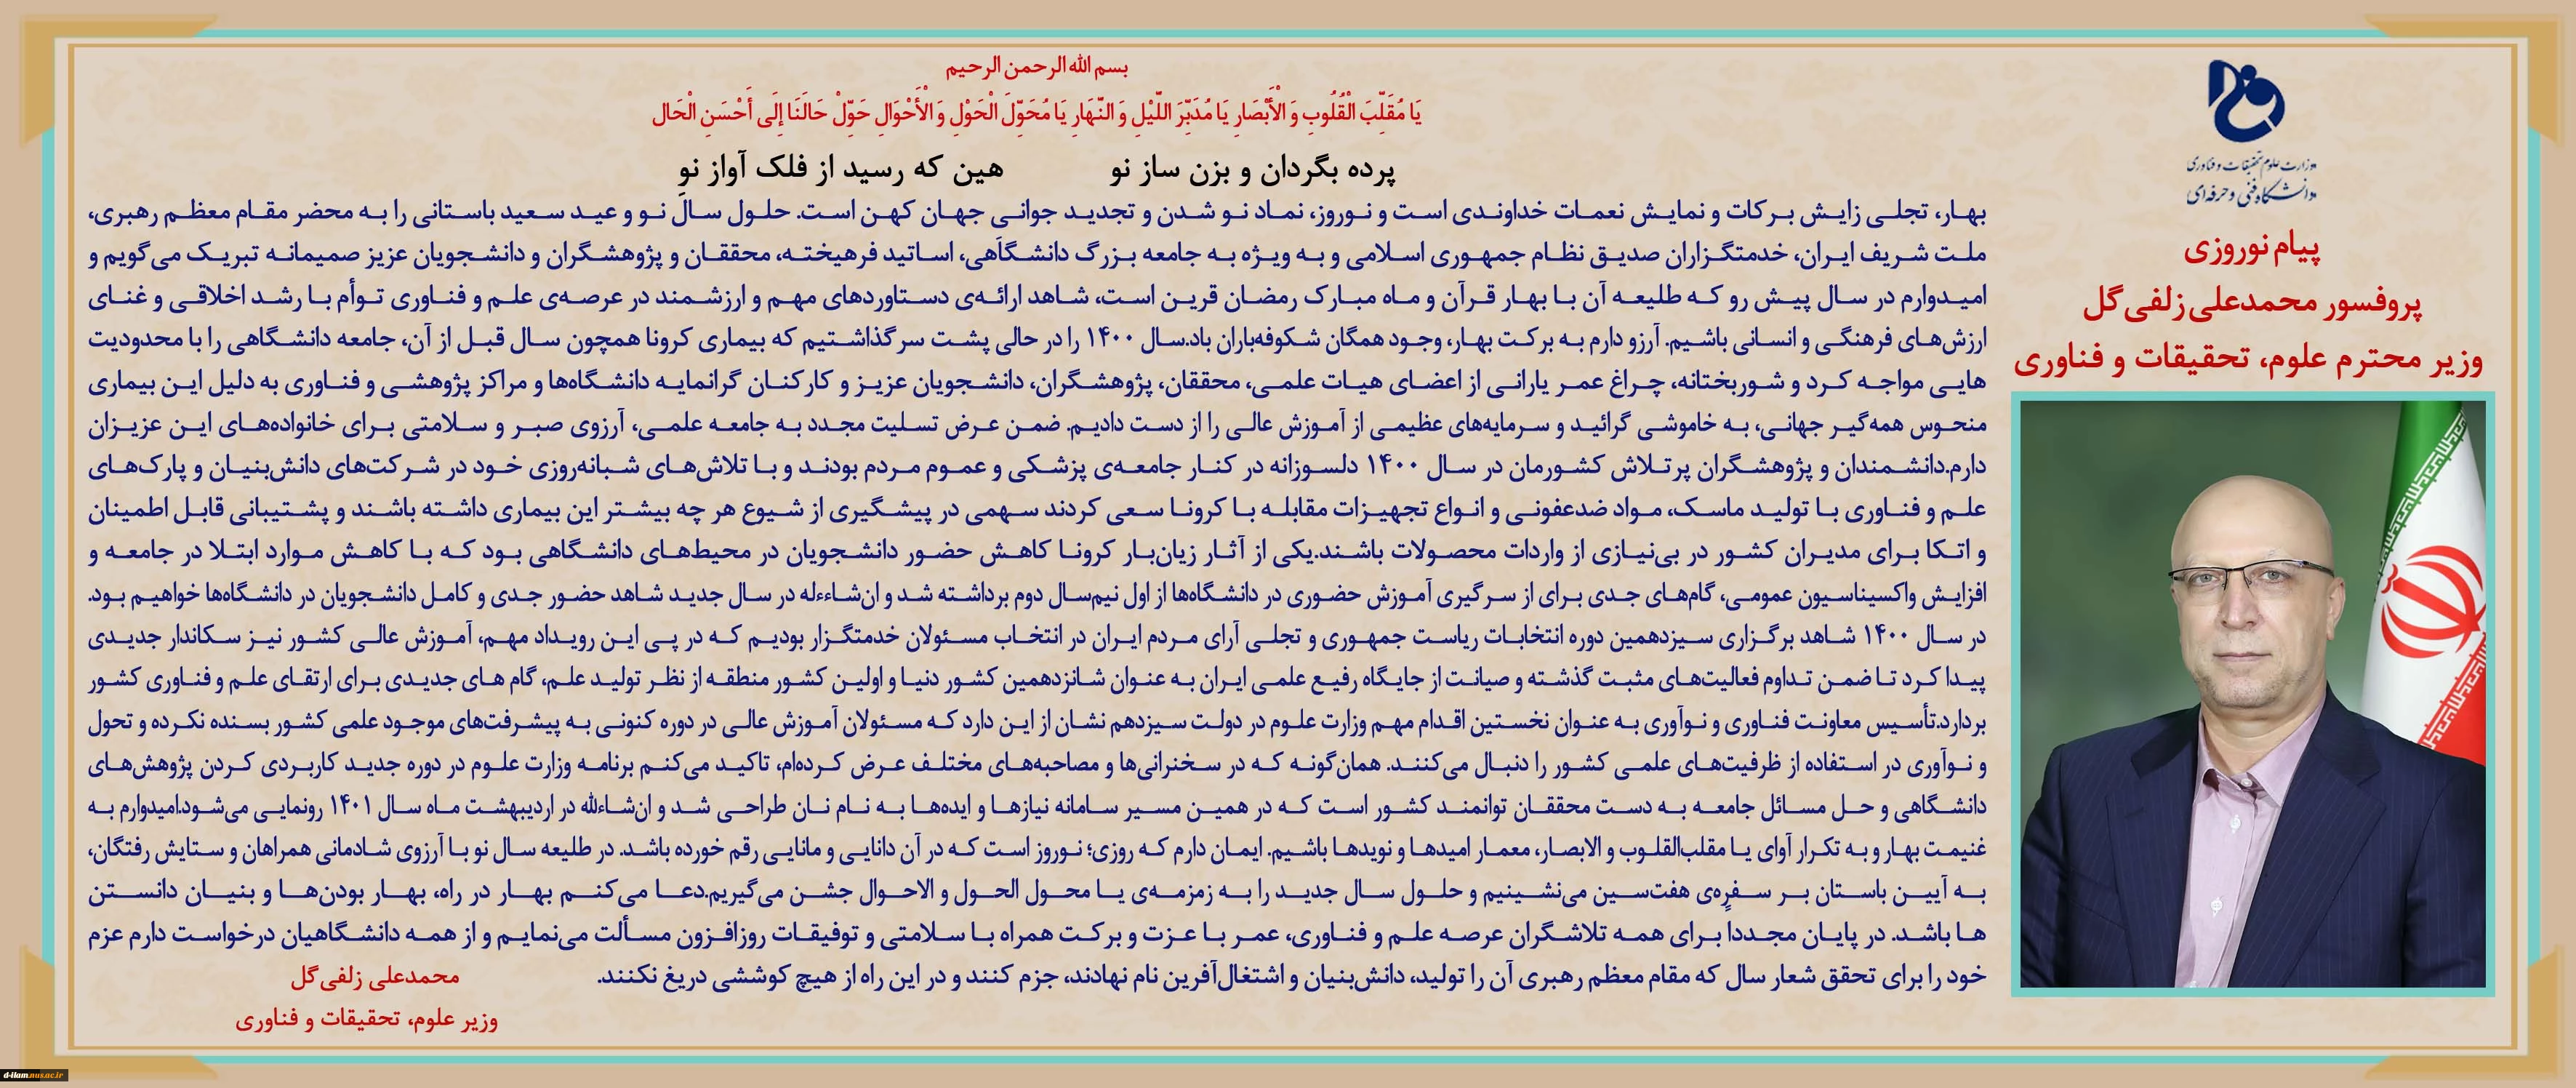 بسم الله الرحمن الرحیم
یَا مُقَلِّبَ الْقُلُوبِ وَ الْأَبْصَارِ یَا مُدَبِّرَ اللَّیْلِ وَ النَّهَارِ یَا مُحَوِّلَ الْحَوْلِ وَ الْأَحْوَالِ حَوِّلْ حَالَنَا إِلَی أَحْسَنِ الْحَال
پرده بگردان و بزن ساز نو هین که رسید از فلک آواز نو
وزارت علوم تحقیقات و فناوری
دانشگاه فنی و حرفه‌ای
پیام نوروزی
پروفسور محمدعلی زلفی‌گل
وزیر محترم علوم، تحقیقات و فناوری
بهار، تجلی زایش برکات و نمایش نعمات خداوندی است و نوروز، نماد نو شدن و تجدید جوانی جهان کهن است. حلول سال نو و عید سعید باستانی را به محضر مقام معظم رهبری،
ملت شریف ایران، خدمتگزاران صدیق نظام جمهوری اسلامی و به ویژه به جامعه بزرگ دانشگاهی، اساتید فرهیخته، محققان و پژوهشگران و دانشجویان عزیز صمیمانه تبریک می‌گویم و
امیدوارم در سال پیش رو که طلیعه آن با بهار قرآن و ماه مبارک رمضان قرین است، شاهد ارائه‌ی دستاوردهای مهم و ارزشمند در عرصه‌ی علم و فناوری توأم با رشد اخلاقی و غنای
ارزش‌های فرهنگی و انسانی باشیم. آرزو دارم به برکت بهار، وجود همگان شکوفه‌باران باد.سال ۱۴۰۰ را در حالی پشت سر گذاشتیم که بیماری کرونا همچون سال قبل از آن، جامعه دانشگاهی را با محدودیت
هایی مواجه کرد و شوربختانه، چراغ عمر یارانی از اعضای هیات علمی، محققان، پژوهشگران، دانشجویان عزیز و کارکنان گرانمایه دانشگاه‌ها و مراکز پژوهشی و فناوری به دلیل این بیماری
منحوس همه‌گیر جهانی، به خاموشی گرائید و سرمایه‌های عظیمی از آموزش عالی را از دست دادیم. ضمن عرض تسلیت مجدد به جامعه علمی، آرزوی صبر و سلامتی برای خانواده‌های این عزیزان
دارم.دانشمندان و پژوهشگران پرتلاش کشورمان در سال ۱۴۰۰ دلسوزانه در کنار جامعه‌ی پزشکی و عموم مردم بودند و با تلاش‌های شبانه‌روزی خود در شرکت‌های دانش‌بنیان و پارک‌های
علم و فناوری با تولید ماسک، مواد ضدعفونی و انواع تجهیزات مقابله با کرونا سعی کردند سهمی در پیشگیری از شیوع هر چه بیشتر این بیماری داشته باشند و پشتیبانی قابل اطمینان
و اتکا برای مدیران کشور در بی‌نیازی از واردات محصولات باشند.یکی از آثار زیان‌بار کرونا کاهش حضور دانشجویان در محیط‌های دانشگاهی بود که با کاهش موارد ابتلا در جامعه و
افزایش واکسیناسیون عمومی، گام‌های جدی برای از سرگیری آموزش حضوری در دانشگاه‌ها از اول نیم‌سال دوم برداشته شد و ان‌شاءءله در سال جدید شاهد حضور جدی و کامل دانشجویان در دانشگاه‌ها خواهیم بود.
در سال ۱۴۰۰ شاهد برگزاری سیزدهمین دوره انتخابات ریاست جمهوری و تجلی آرای مردم ایران در انتخاب مسئولان خدمتگزار بودیم که در پی این رویداد مهم، آموزش عالی کشور نیز سکاندار جدیدی
پیدا کرد تا ضمن تداوم فعالیت‌های مثبت گذشته و صیانت از جایگاه رفیع علمی ایران به عنوان شانزدهمین کشور دنیا و اولین کشور منطقه از نظر تولید علم، گام های جدیدی برای ارتقای علم و فناوری کشور
بردارد.تأسیس معاونت فناوری و نوآوری به عنوان نخستین اقدام مهم وزارت علوم در دولت سیزدهم نشان از این دارد که مسئولان آموزش عالی در دوره کنونی به پیشرفت‌های موجود علمی کشور بسنده نکرده و تحول
و نوآوری در استفاده از ظرفیت‌های علمی کشور را دنبال می‌کنند. همان‌گونه که در سخنرانی‌ها و مصاحبه‌های مختلف عرض کرده‌ام، تاکید می‌کنم برنامه وزارت علوم در دوره جدید کاربردی کردن پژوهش‌های
دانشگاهی و حل مسائل جامعه به دست محققان توانمند کشور است که در همین مسیر سامانه نیازها و ایده‌ها به نام نان طراحی شد و ان‌شاءلله در اردیبهشت ماه سال ۱۴۰۱ رونمایی می‌شود.امیدوارم به
غنیمت بهار و به تکرار آوای یا مقلب‌القلوب و الابصار، معمار امیدها و نویدها باشیم. ایمان دارم که روزی؛ نوروز است که در آن دانایی و مانایی رقم خورده باشد. در طلیعه سال نو با آرزوی شادمانی همراهان و ستایش رفتگان،
به آیین باستان بر سفره‌ی هفت‌سین می‌نشینیم و حلول سال جدید را به زمزمه‌ی یا محول الحول و الاحوال جشن می‌گیریم.دعا می‌کنم بهار در راه، بهار بودن‌ها و بنیان دانستن
ها باشد. در پایان مجددا برای همه تلاشگران عرصه علم و فناوری، عمر با عزت و برکت همراه با سلامتی و توفیقات روزافزون مسألت می‌نمایم و از همه دانشگاهیان درخواست دارم عزم
خود را برای تحقق شعار سال که مقام معظم رهبری آن را تولید، دانش‌بنیان و اشتغال‌آفرین نام نهادند، جزم کنند و در این راه از هیچ کوششی دریغ نکنند.
محمدعلی زلفی‌گل
وزیر علوم، تحقیقات و فناوری
d-ilam.nus.ac.ir